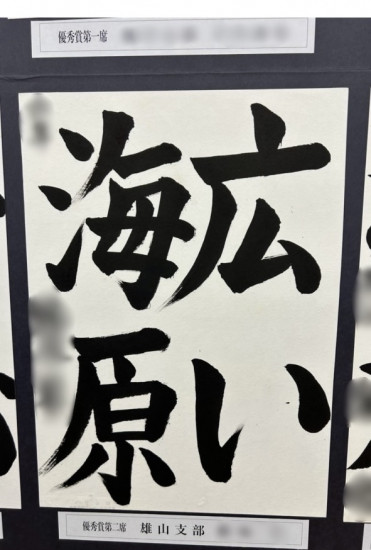 優秀賞第一席
広い
海原
優秀賞第二席 雄山支部